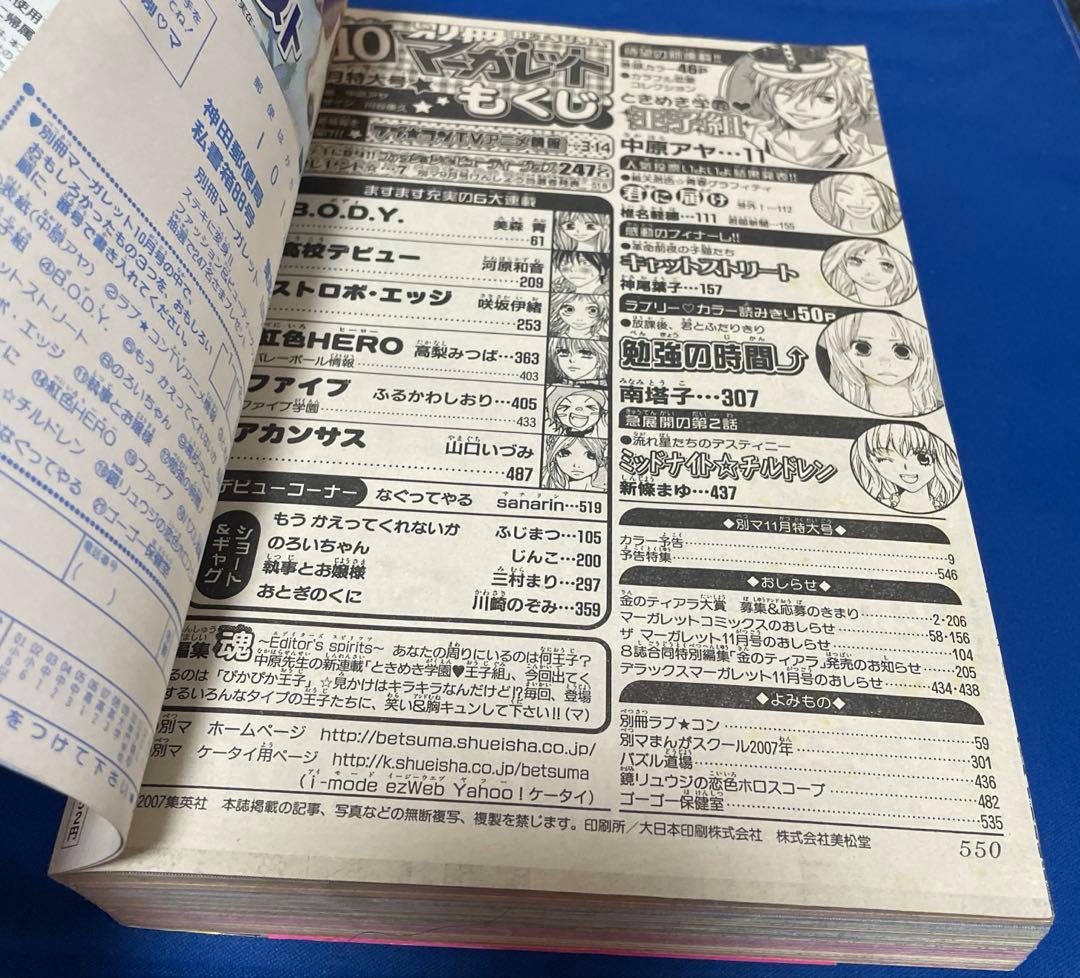 10
別冊
マーガレット
月特大号
もくじ
中原アヤ
ラブ★コンTVアニメ情報…3・14
247名
ますます充実の6大連載
B.O.D.Y.
美森 青
61
高校デビュー
河原和音
209
ストロボ・エッジ
咲坂伊緒
253
紅色HERO 高梨みつば…363
バレーボール情報
403
ファイブ ふるかわしおり…405
ファイブ学園
433
アカンサス
山口いづみ
487
デビューコーナー なぐってやる sanarin…519
ショート&ギャグ
もう かえってくれないか ふじまつ…105
のろいちゃん じんこ…200
執事とお嬢様 三村まり…297
おとぎのくに 川崎のぞみ…359
編集魂
~Editor's spirits~ あなたの周りにいるのは何王子?
中原先生の新連載「ときめき学園♥王子組」、今回出てく
るのは「ぴかぴか王子」☆見かけはキラキラなんだけど!?毎回、登場
するいろんなタイプの王子たちに、笑い&胸キュンして下さい!!(マ)
別マ ホームページ http://betsuma.shueisha.co.jp/
別マ ケータイ用ページ http://k.shueisha.co.jp/betsuma
(i-mode ezWeb Yahoo!ケータイ)
2007集英社 本誌掲載の記事、写真などの無断複写、複製を禁じます。印刷所/大日本印刷株式会社 株式会社美松堂
待望の新連載!!
巻頭カラー46P
●カラフル王子コレクション
ときめき学園♥
王子組
中原アヤ…11
人気投票いよいよ結果発表!!
君に届け
番外1…112
椎名軽穂…111
155
感動のフィナーレ!!
●革命前夜の子猫たち
キャットストリート
神尾葉子…157
ラブリー♡カラー読みきり50P
●放課後、君とふたりきり
勉強の時間
南塔子…307
急展開の第2話
●流れ星たちのデスティニー
ミッドナイト☆チルドレン
新條まゆ…437
◆別マ11月特大号◆
カラー予告 9
予告特集 546
◆おしらせ◆
金のティアラ大賞 募集&応募のきまり 2・206
マーガレットコミックスのおしらせ 58・156
ザ マーガレット11月号のおしらせ 104
8誌合同特別編集「金のティアラ」発売のお知らせ 205
デラックスマーガレット11月号のおしらせ 434・438
◆よみもの◆
別冊ラブ★コン 59
別マまんがスクール2007年 301
パズル道場 436
鏡リュウジの恋色ホロスコープ 482
ゴーゴー保健室 535
550
神田郵便局
私書箱68号
別冊マーガレット
♥別冊マーガレット10月号の中で、
おもしろかったもの3つを、おもしろい
順に、番号で書き入れてください。
④B.O.D.Y.
②ラブ★コンTVアニメ情報
⑤もう かえってくれないか
⑧のろいちゃん
⑪執事とお嬢様
⑭紅色HERO
⑯ファイブ
チルドレン
なぐってやる
ゴーゴー保健室
電話番号
をつけて下さい